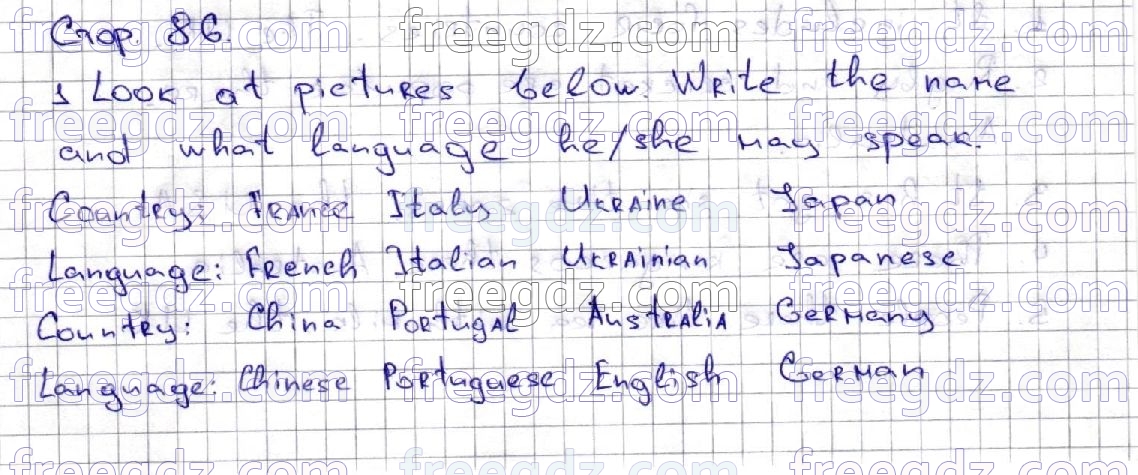 Стор. 86.
1 Look at pictures below. Write the name
and what language he/she may speak.
Country: France Italy Ukraine Japan
Language: French Italian Ukrainian Japanese
Country: China Portugal Australia Germany
Language: Chinese Portuguese English German
freegdz.com